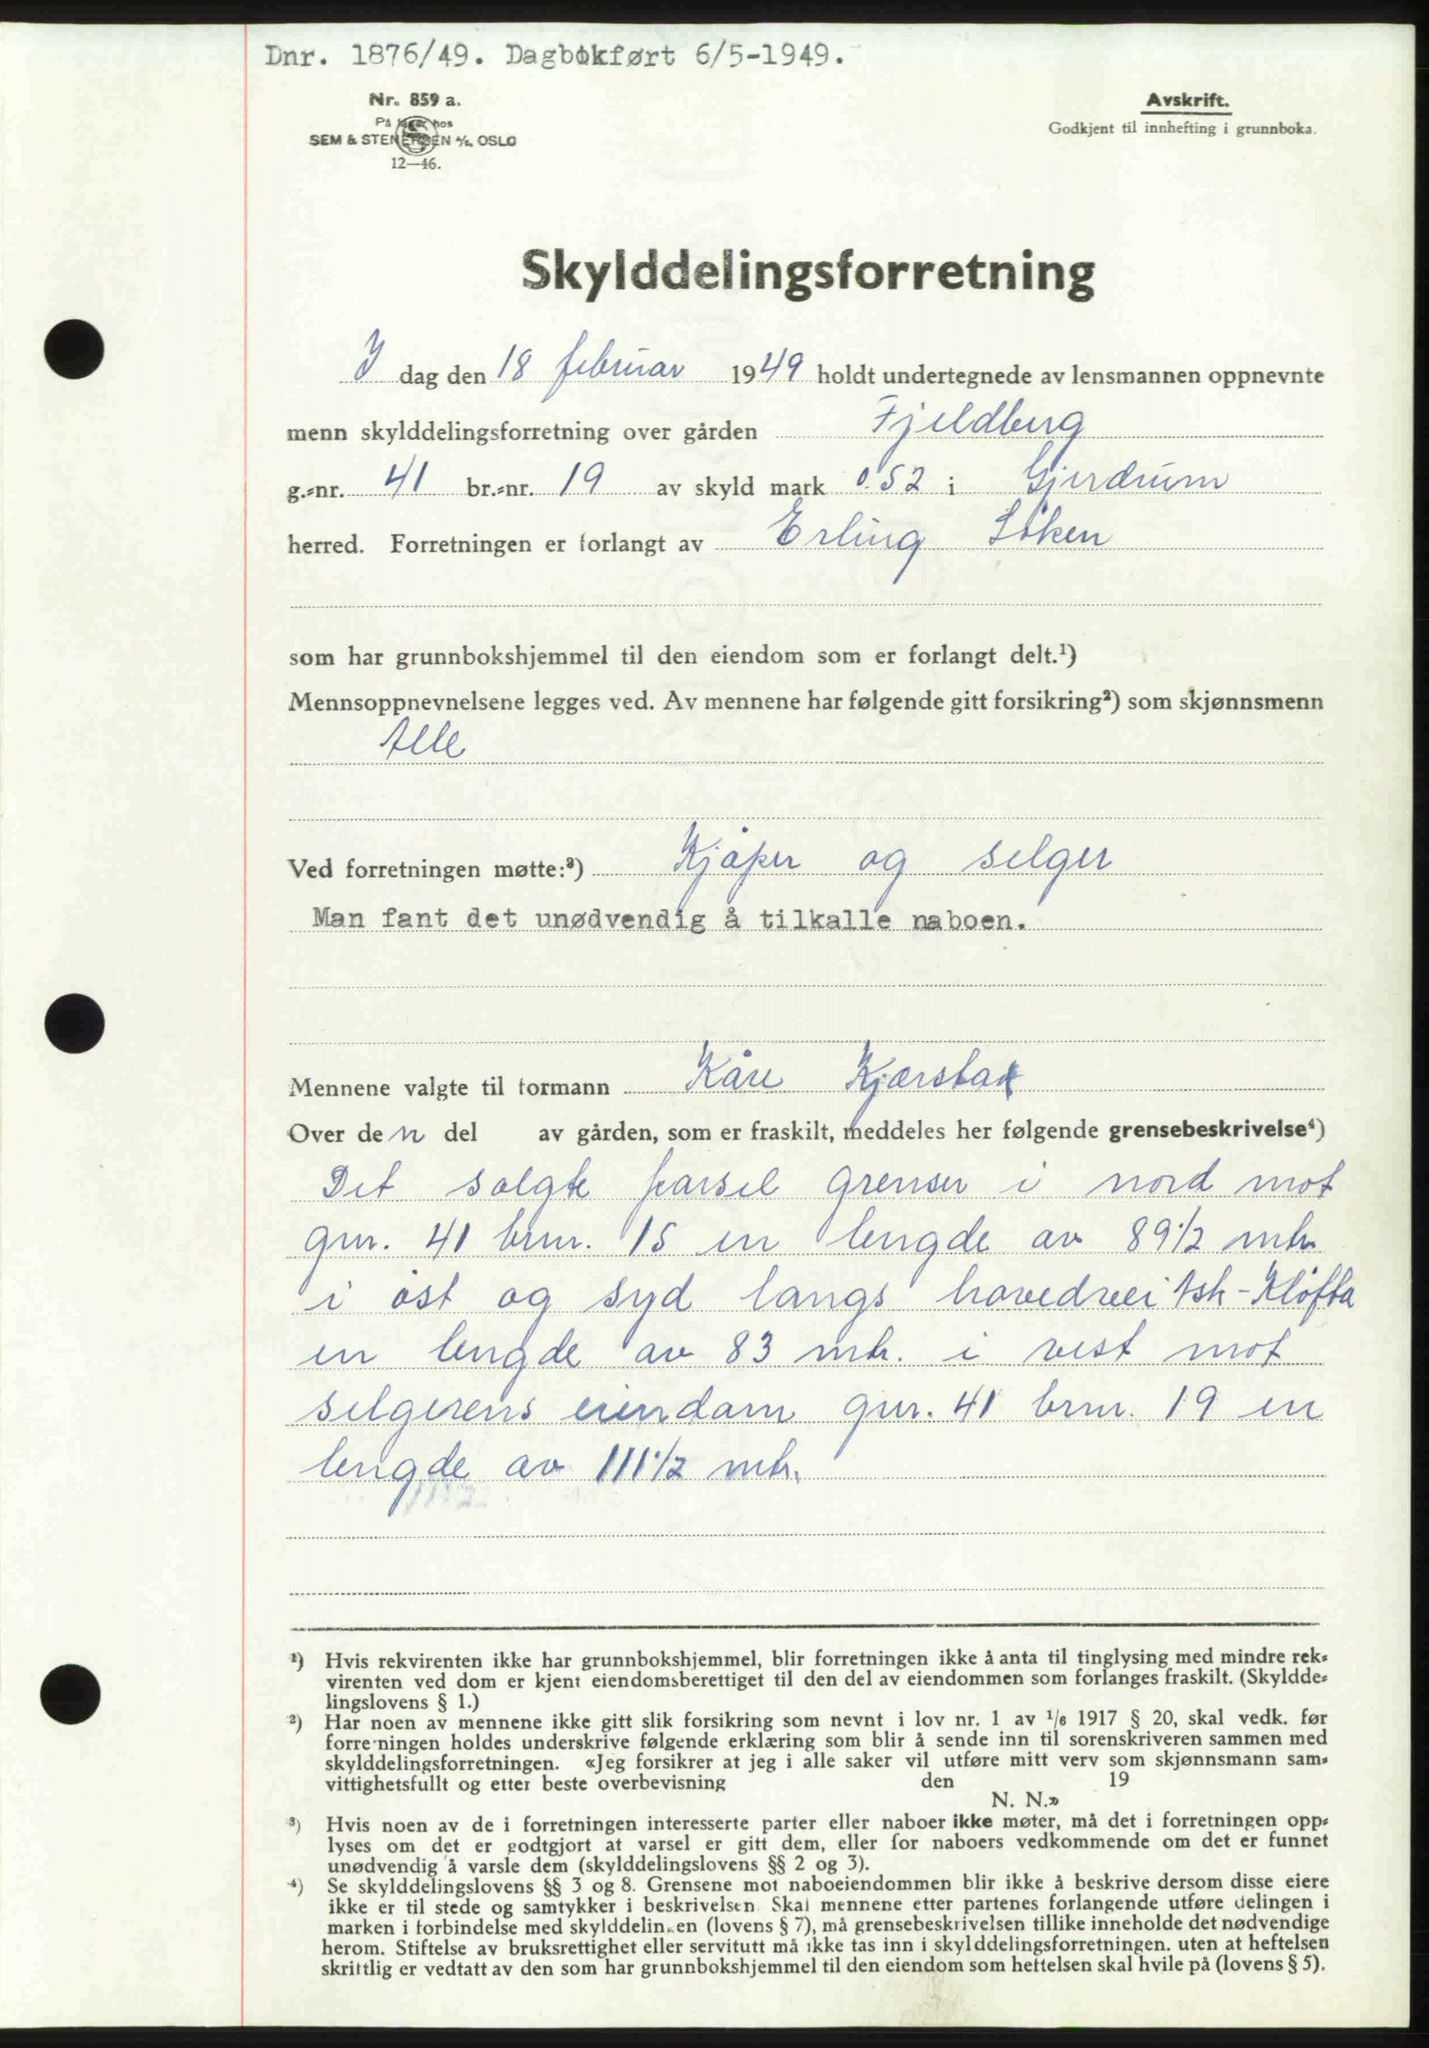 Dnr. 1876/49. Dagbokført 6/5-1949.
Nr. 859 a.
På lager hos
SEM & STENERSEN A/S, OSLO
12—46.
Avskrift.
Godkjent til innhefting i grunnboka.
Skylddelingsforretning
I dag den 18 februar 1949 holdt undertegnede av lensmannen oppnevnte
menn skylddelingsforretning over gården Fjeldberg
g.-nr. 41 br.-nr. 19 av skyld mark 0.52 i Gjerdrum
herred. Forretningen er forlangt av Erling Löken
som har grunnbokshjemmel til den eiendom som er forlangt delt.¹)
Mennsoppnevnelsene legges ved. Av mennene har følgende gitt forsikring²) som skjønnsmenn
Alle
Ved forretningen møtte:³) Kjøper og selger
Man fant det unødvendig å tilkalle naboen.
Mennene valgte til formann Kåre Kjærstad
Over den del av gården, som er fraskilt, meddeles her følgende grensebeskrivelse⁴)
Det solgte parsel grenser i nord mot
gnr. 41 brnr. 15 en lengde av 89 1/2 mtr.
i öst og syd langs hovedvei Ask-Klöfta
en lengde av 83 mtr. i vest mot
selgerens eiendom gnr. 41 brnr. 19 en
lengde av 111 1/2 mtr.
¹) Hvis rekvirenten ikke har grunnbokshjemmel, blir forretningen ikke å anta til tinglysing med mindre rek-
virenten ved dom er kjent eiendomsberettiget til den del av eiendommen som forlanges fraskilt. (Skyldde-
lingslovens § 1.)
²) Har noen av mennene ikke gitt slik forsikring som nevnt i lov nr. 1 av 1/6 1917 § 20, skal vedk. før
forretningen holdes underskrive følgende erklæring som blir å sende inn til sorenskriveren sammen med
skylddelingsforretningen. «Jeg forsikrer at jeg i alle saker vil utføre mitt verv som skjønnsmann sam-
vittighetsfullt og etter beste overbevisning den 19
N. N.»
³) Hvis noen av de i forretningen interesserte parter eller naboer ikke møter, må det i forretningen opp-
lyses om det er godtgjort at varsel er gitt dem, eller for naboers vedkommende om det er funnet
unødvendig å varsle dem (skylddelingslovens §§ 2 og 3).
⁴) Se skylddelingslovens §§ 3 og 8. Grensene mot naboeiendommen blir ikke å beskrive dersom disse eiere
ikke er til stede og samtykker i beskrivelsen. Skal mennene etter partenes forlangende utføre delingen i
marken i forbindelse med skylddelingen (lovens § 7), må grensebeskrivelsen tillike inneholde det nødvendige
herom. Stiftelse av bruksrettighet eller servitutt må ikke tas inn i skylddelingsforretningen, uten at heftelsen
skriftlig er vedtatt av den som har grunnbokshjemmel til den eiendom som heftelsen skal hvile på (lovens § 5).